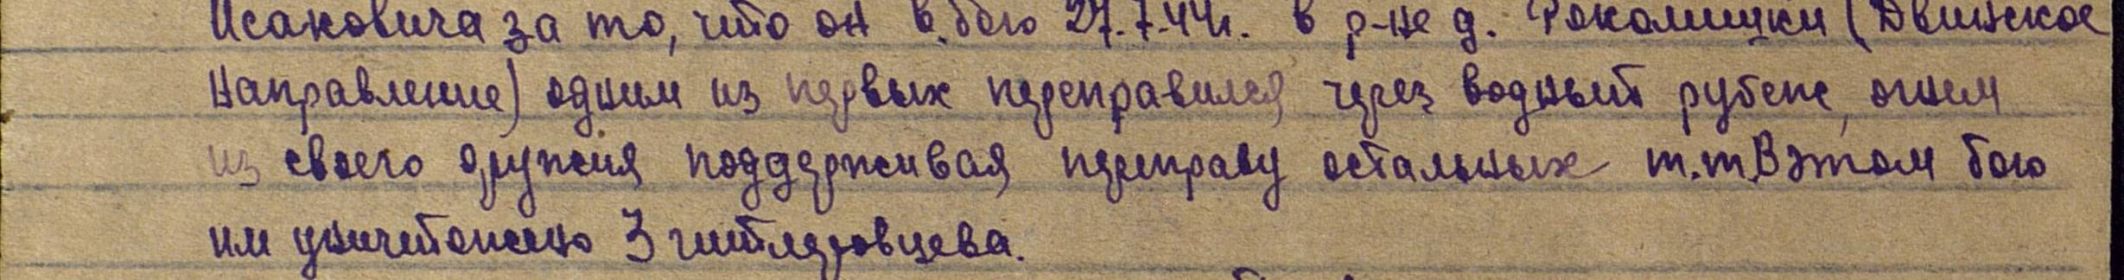 Исаковича за то, что он в бою 27.7.44г. в р-не д. Рокалишки (Двинское
направление) одним из первых переправился через водный рубеже, огнем
из своего оружия поддерживая переправу остальных т.т. В этом бою
им уничтожено 3 гитлеровцева.